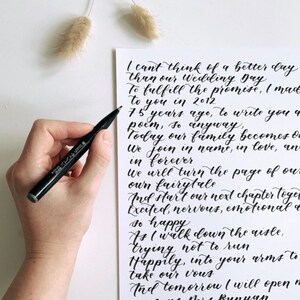 I can't think of a better day
than our Wedding Day
To fulfill the promise, I made
to you in 2012
7.5 years ago, to write you a
poem, so anyway
Today our family becomes o
We join in name, in love, an
in forever
We will turn the page of ou
own fairytale
And start our next chapter toge
Excited, nervous, emotional a
so happy
As I walk down the aisle,
trying not to run
Happily, into your arms to
take our vows
And tomorrow I will open m